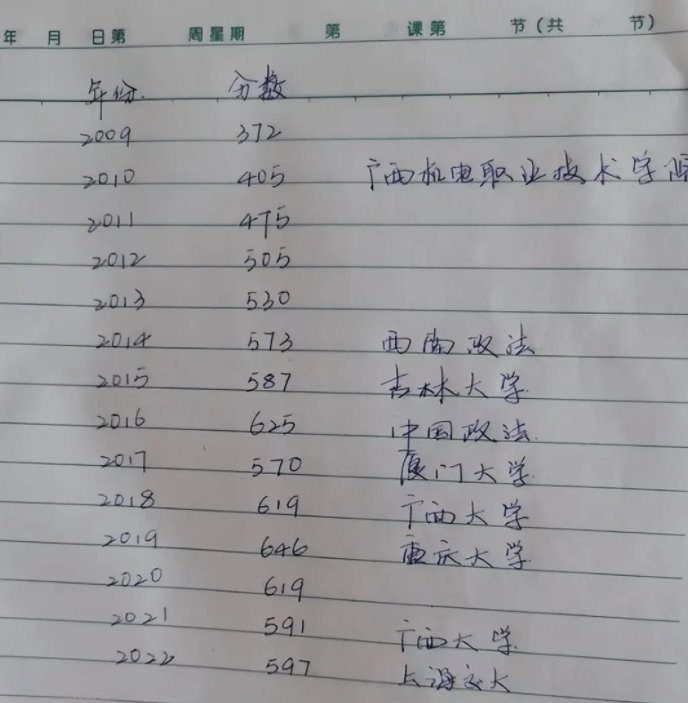 年 月 日第 周星期 第 课第 节(共 节)
年份. 分数
2009 372
2010 405 广西机电职业技术学院
2011 475
2012 505
2013 530
2014 573 西南政法
2015 587 吉林大学
2016 625 中国政法.
2017 570 厦门大学.
2018 619 广西大学
2019 646 重庆大学.
2020 619
2021 591 广西大学.
2022 597 上海交大